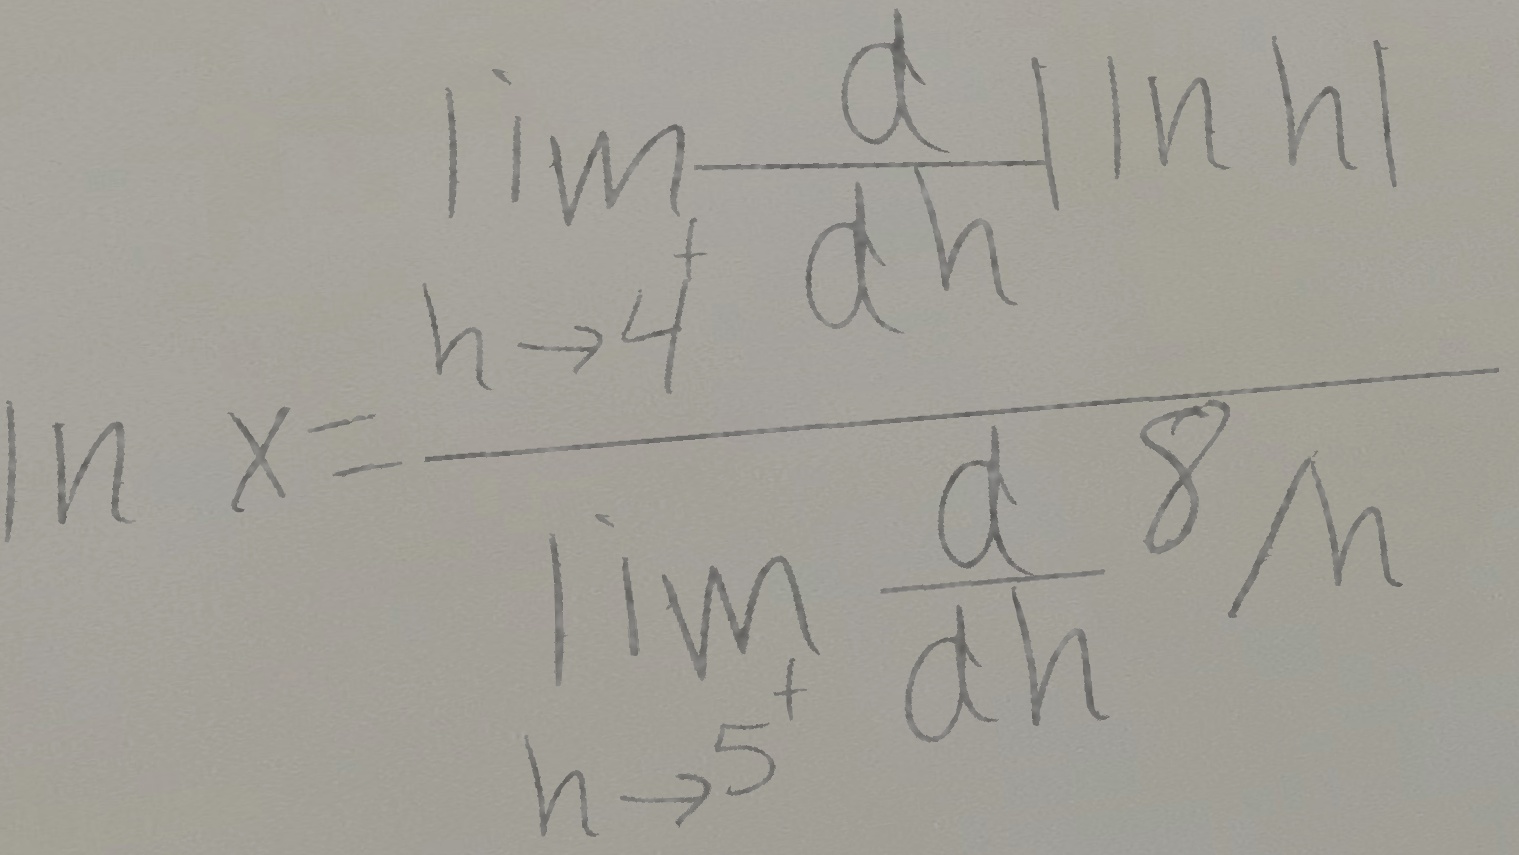 ln x = \frac{\lim_{h \to 4^+} \frac{d}{dh} |\ln h|}{\lim_{h \to 5^+} \frac{d}{dh} 8/h}